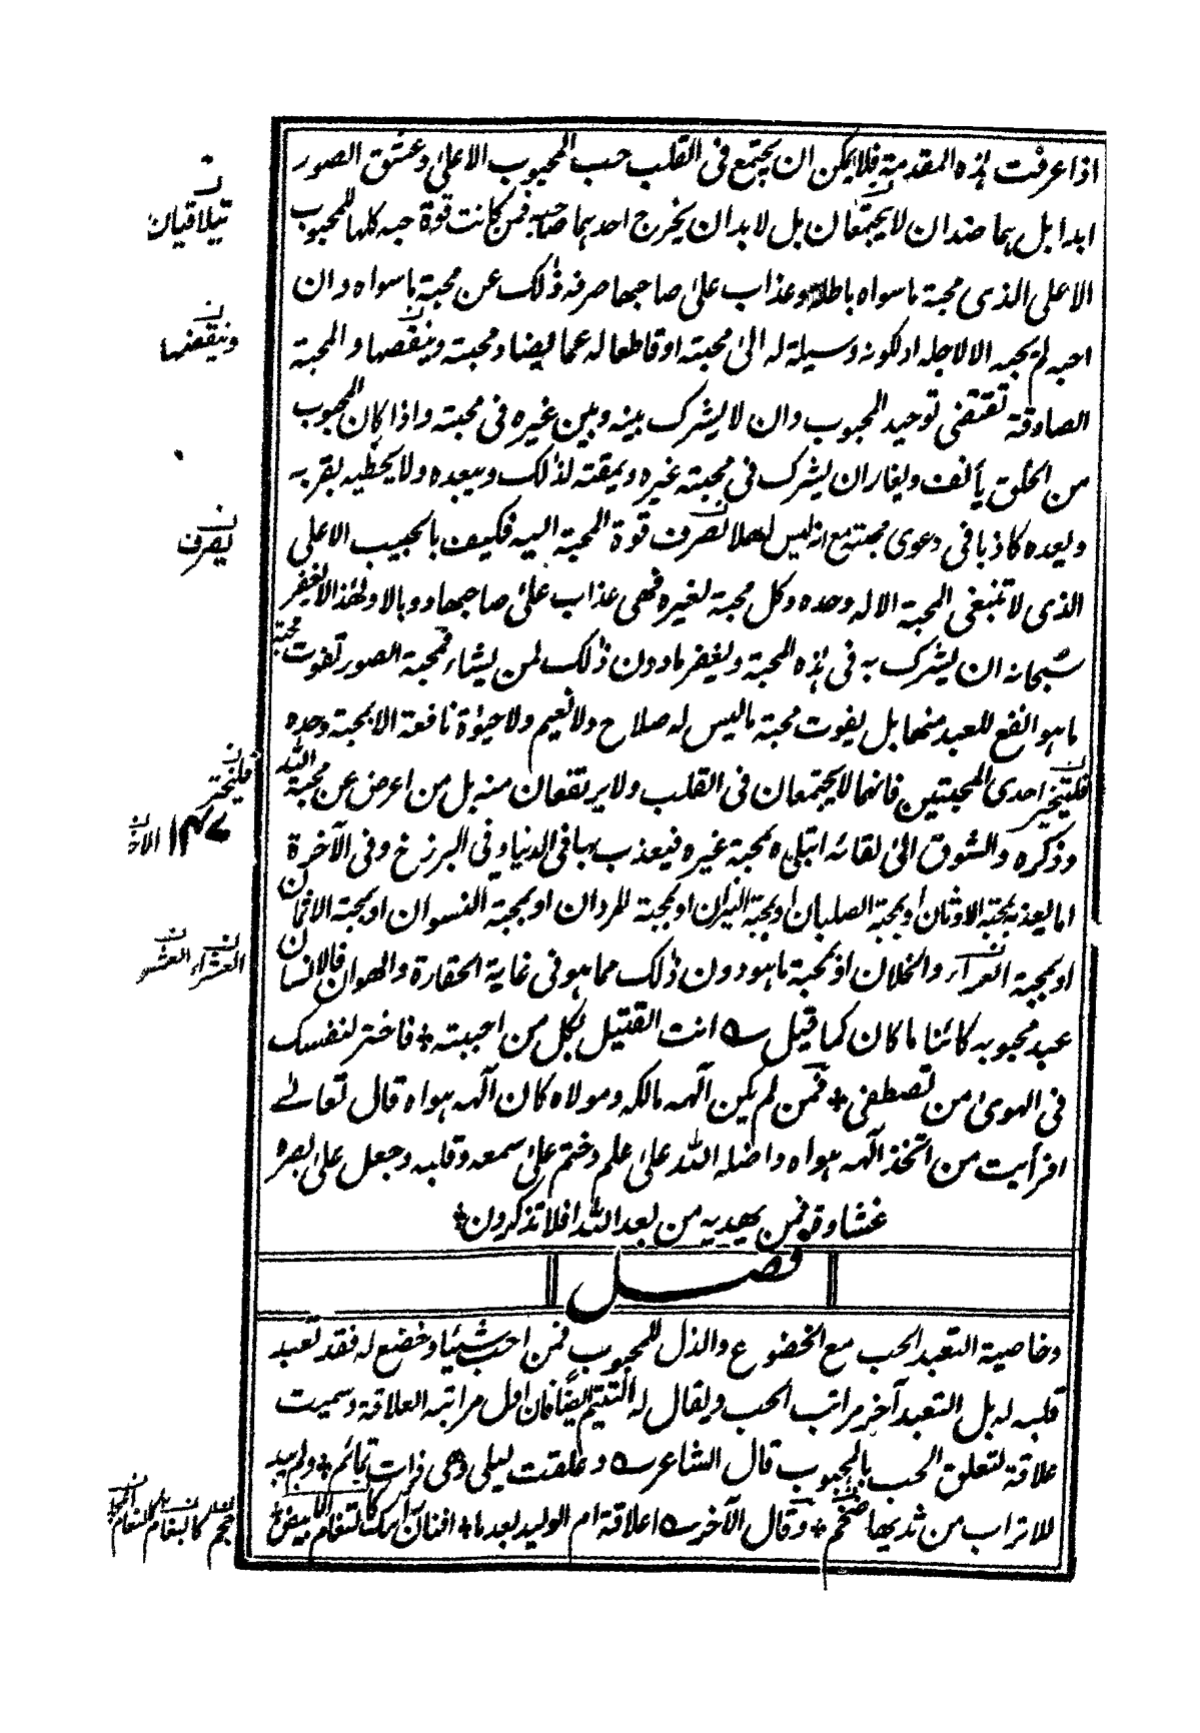 اذا عرفت هذه المقدمة فلا يمكن ان يجتمع فى القلب حب المحبوب الاعلى وعشق الصور
ابدا بل هما ضدان لا يجتمعان بل لا بد ان يخرج احدهما صاحبه فمن كانت قوة حبه كلها للمحبوب
الاعلى الذى محبة ما سواه باطلة وعذاب على صاحبها صرفه ذلك عن محبة ما سواه وان
احبه لم يحبه الا لاجله او لكونه وسيلة له الى محبته او قاطعا له عما يضاد محبته وينقصها والمحبة
الصادقة تقتضى توحيد المحبوب وان لا يشرك بينه وبين غيره فى محبته واذا كان المحبوب
من الخلق يأنف ويغار ان يشرك فى محبته غيره ويمقته لذلك ويبعده ولا يحظيه بقربه
ويعده كاذبا فى دعوى محبته مع انه ليس اهلا لصرف قوة المحبة اليه فكيف بالحبيب الاعلى
الذى لا تنبغى المحبة الا له وحده وكل محبة لغيره فهى عذاب على صاحبها ووبالا ولهذا لا يغفر
سبحانه ان يشرك به فى هذه المحبة ويغفر ما دون ذلك لمن يشاء فمحبة الصور تفوت محبة
ما هو انفع للعبد منها بل يفوت محبة ما ليس له صلاح ولا نعيم ولا حيوة نافعة الا بمحبة وحده
فليتخير احدى المحبتين فانهما لا يجتمعان فى القلب ولا يرتفعان منه بل من اعرض عن محبة الله
وذكره والشوق الى لقائه ابتلى ه بمحبة غيره فيعذب بها فى الدنيا وفى البرزخ وفى الآخرة
اما يعذبه بمحبة الاوثان او بمحبة الصلبان او بمحبة النيران او بمحبة المردان او بمحبة النسوان او بمحبة الاثمان
او بمحبة العراء والخلان او بمحبة ما هو دون ذلك مما هو فى غاية الحقارة والهوان فالانسان
عبد محبوبه كائنا ما كان كما قيل ؎ انت القتيل بكل من احببته * فاختر لنفسك
فى الهوى من تصطفى * فمن لم يكن الهه مالكه ومولاه كان الهه هواه قال تعالى
افرأيت من اتخذ الهه هواه واضله الله على علم وختم على سمعه وقلبه وجعل على بصره
غشاوة فمن يهديه من بعد الله افلا تذكرون *
فصل
وخاصية التعبد الحب مع الخضوع والذل للمحبوب فمن احب شيئا وخضع له فقد تعبد
قلبه له بل التعبد آخر مراتب الحب ويقال له التتيم ايضا فان اول مراتبه العلاقة وسميت
علاقة لتعلق الحب بالمحبوب قال الشاعر ؎ وعلقت ليلى وهى ذات تمائم * ولم يبد
للاتراب من ثديها ضخم * وقال الآخر ؎ اعلاقة ام الوليد بعد ما * افنان رأسك كالثغام الابيض *
ن
يتلاقيان
ن
وينقصها
ن
يصرف
ن
فليختر
ن
العشراء العشير
حجم